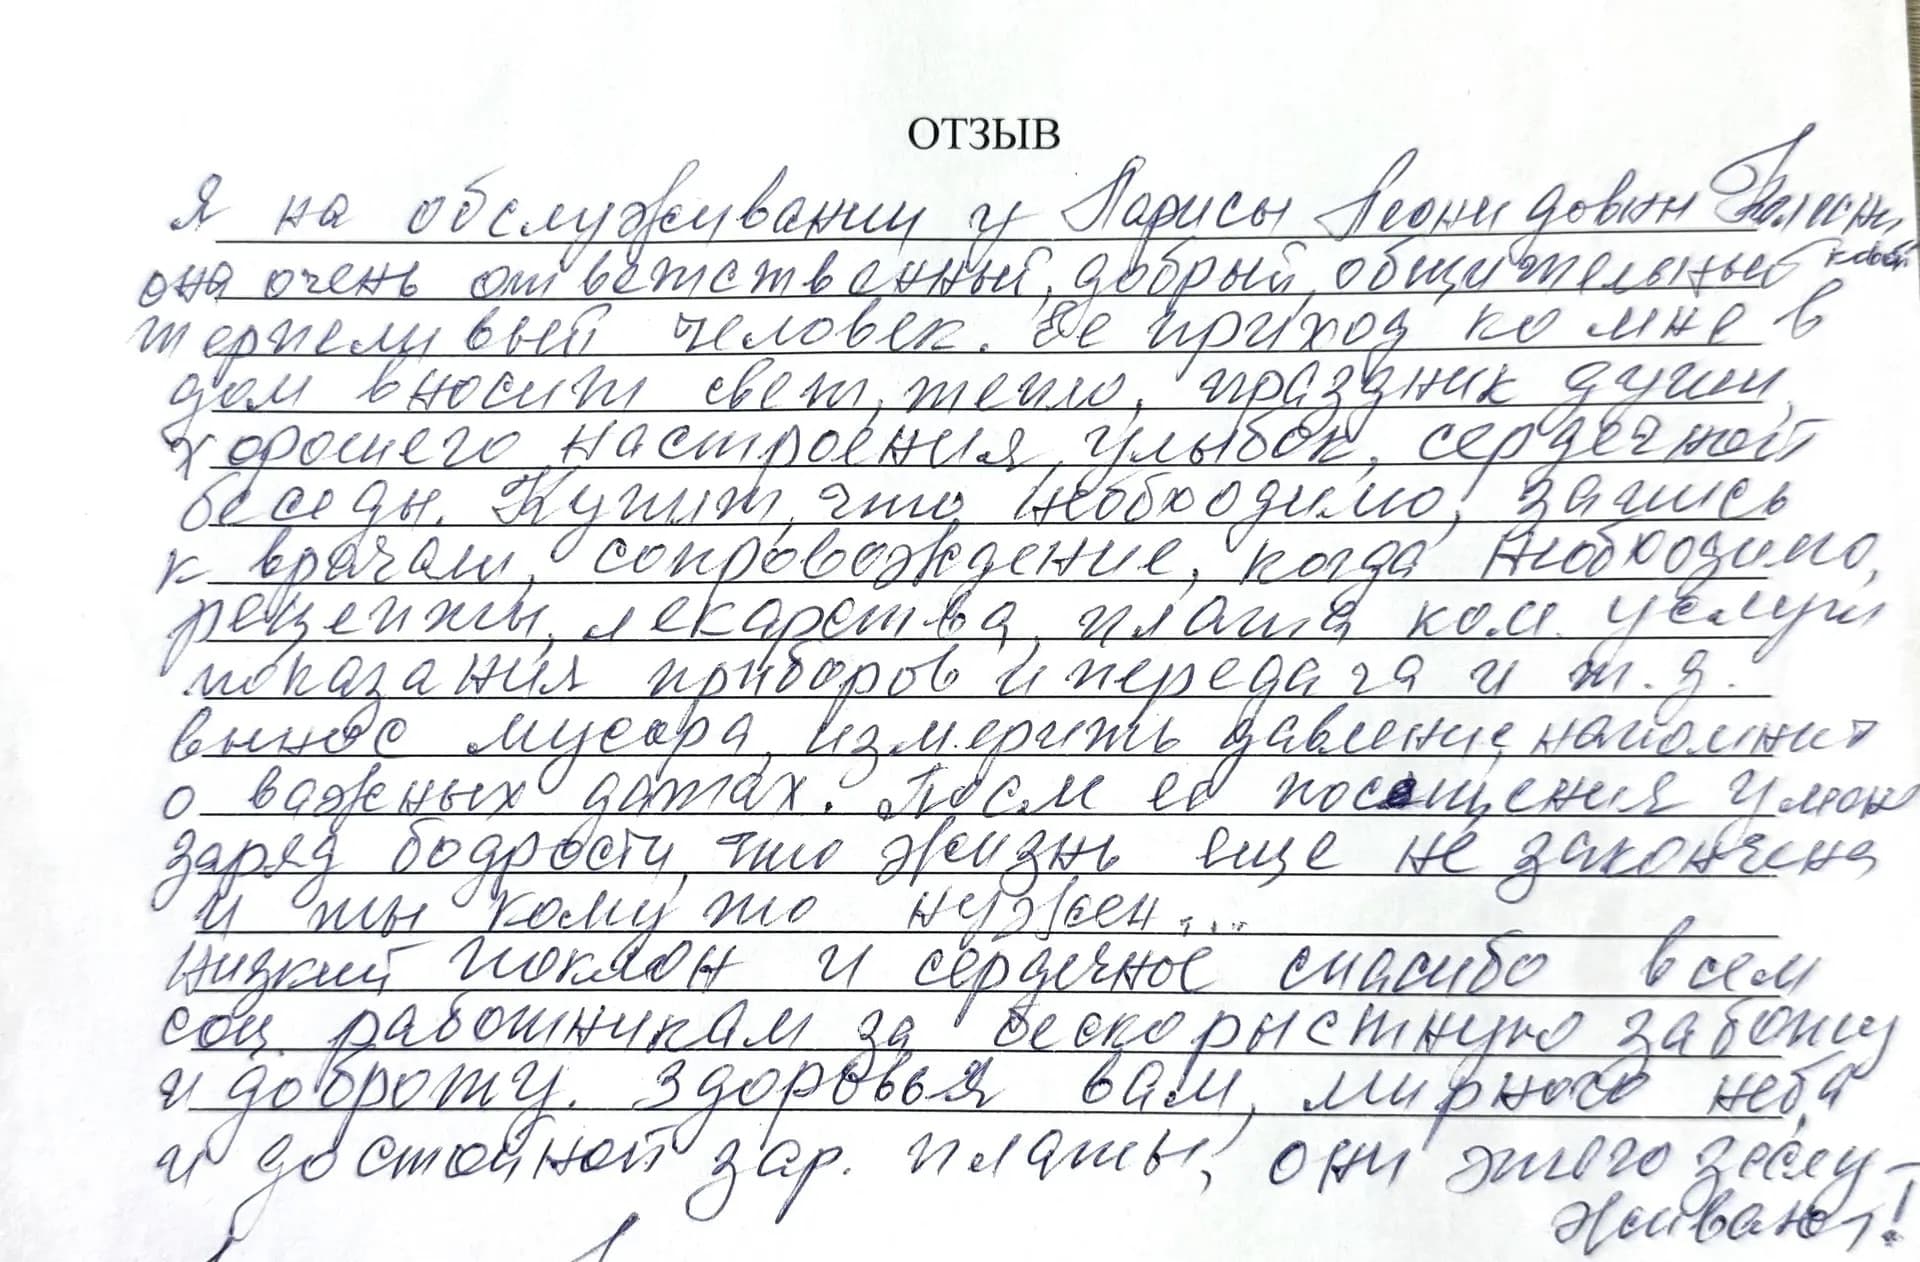 ОТЗЫВ
Я на обслуживании у Ларисы Леонидовны
она очень ответственный, добрый, общительный
терпеливый человек. Её приход ко мне в
дом вносит свет, тепло, праздник души,
хорошего настроения, улыбок, сердечной
беседы. Купит, что необходимо, запись
к врачам, сопровождение, когда необходимо,
рецепты, лекарства, плата ком. услуги
показания приборов и передача и т.д.
вынос мусора, измерить давление, напомнит
о важных датах. После её посещения у меня
заряд бодрости, что жизнь еще не закончена
и ты кому то нужен...
низкий поклон и сердечное спасибо всем
соц. работникам за бескорыстную заботу
и доброту. Здоровья вам, мирного неба
и достойной зар. платы, они этого заслу-
живают!